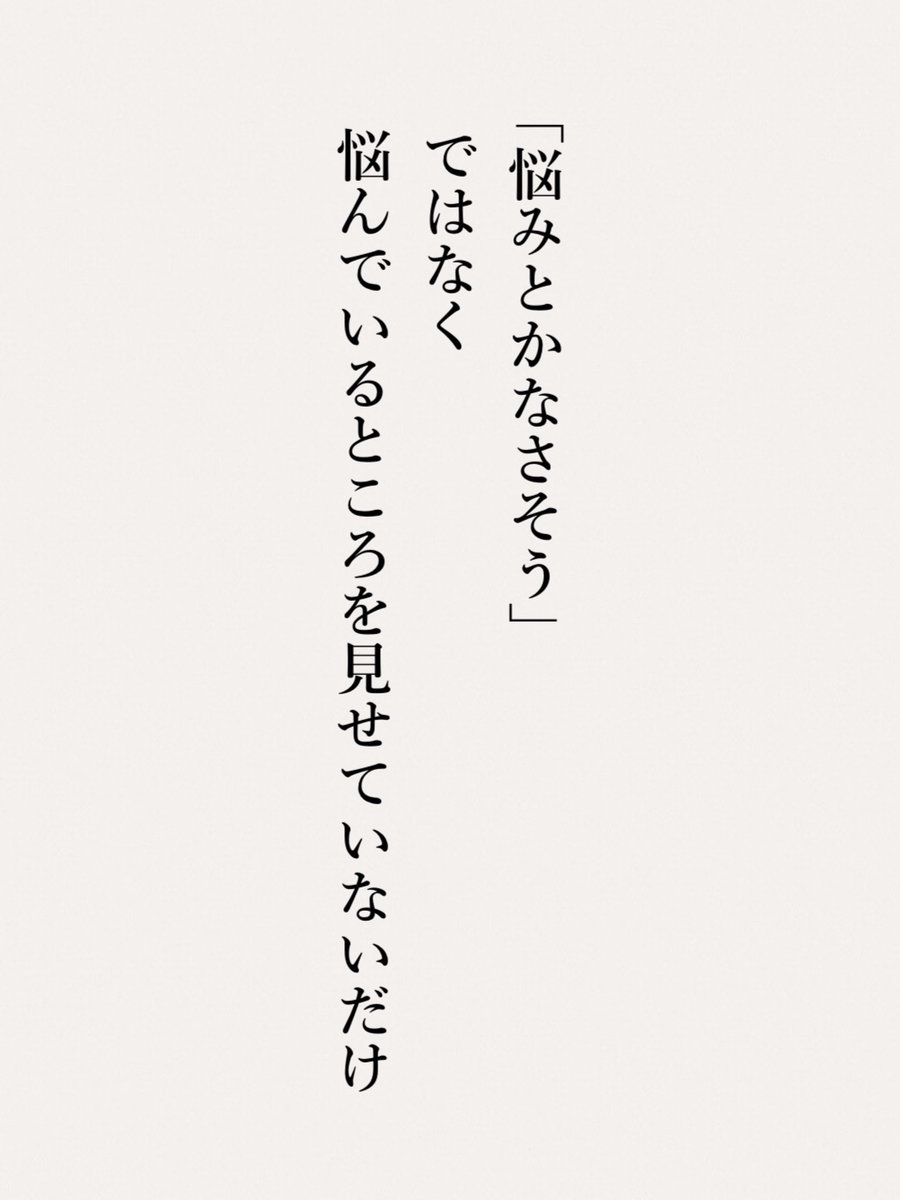 「悩みとかなさそう」
ではなく
悩んでいるところを見せていないだけ